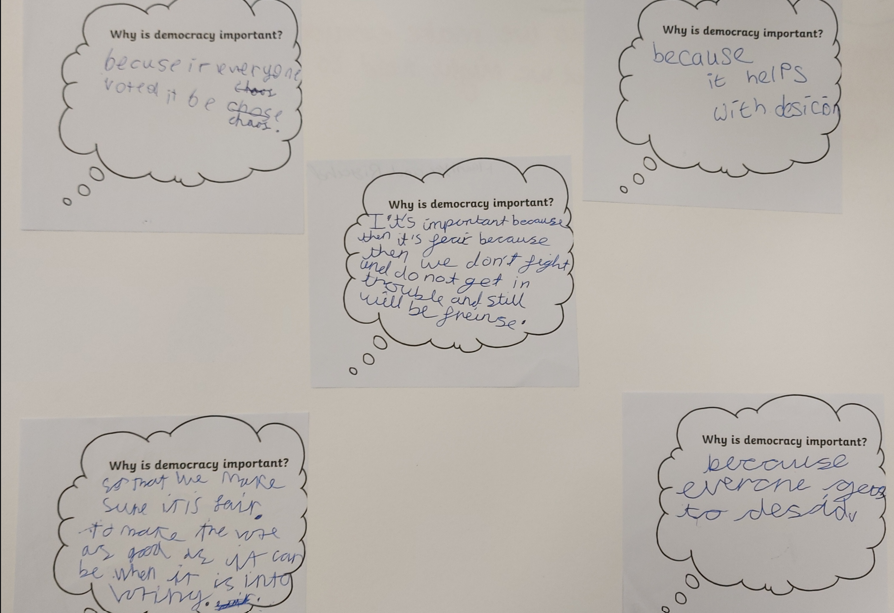 Why is democracy important?
becuse if everyone
voted it be chose
chaos.
Why is democracy important?
because
it helps
with desicon
Why is democracy important?
It's important because
then it's feair because
then we don't fight
and do not get in
trouble and still
will be freinse.
Why is democracy important?
so that we make
sure it is fair.
to make the vote
as good as it can
be when it is into
voting.
Why is democracy important?
because
everone gets
to desid